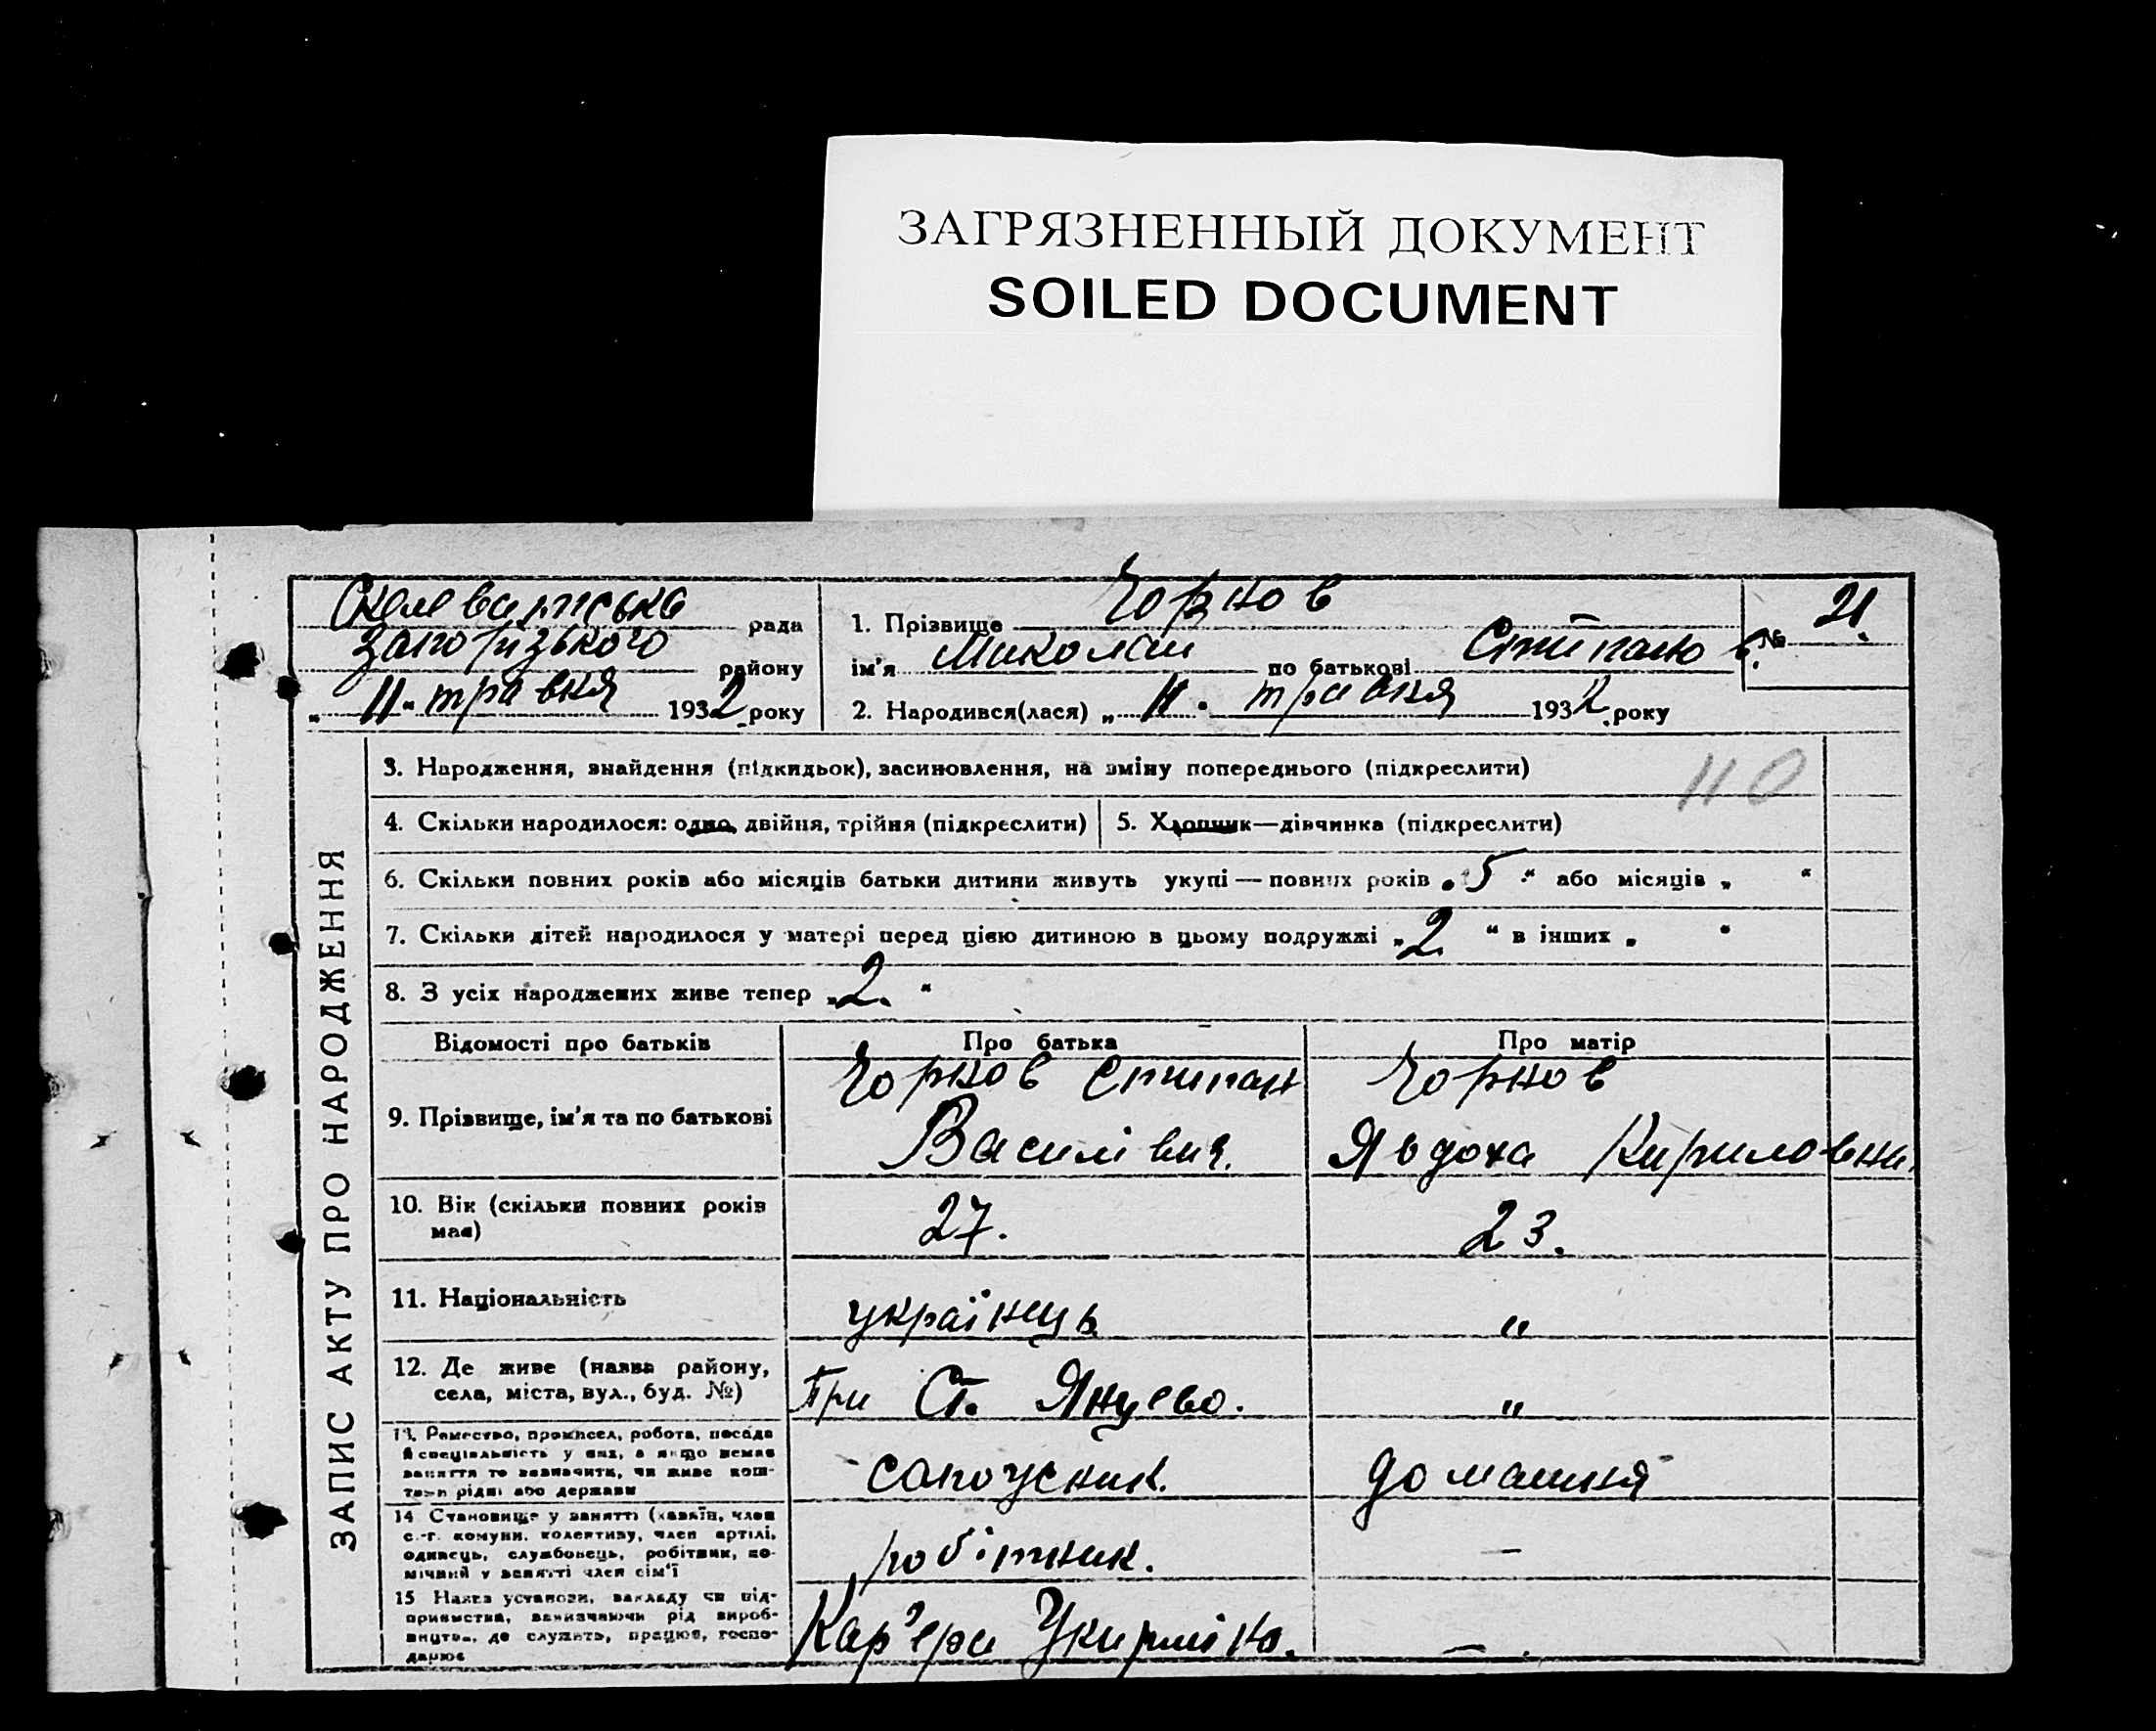 ЗАГРЯЗНЕННЫЙ ДОКУМЕНТ
SOILED DOCUMENT
рада
району
„ 11 " травня 1932 року
1. Прізвище Чорнов
ім'я Миколай по батькові
№ 21.
2. Народився(лася) „ 11 " травня 1932 року
110
ЗАПИС АКТУ ПРО НАРОДЖЕННЯ
3. Народження, знайдення (підкидьок), засиновлення, на зміну попереднього (підкреслити)
4. Скільки народилося: одно, двійня, трійня (підкреслити)
5. Хлопчик—дівчинка (підкреслити)
6. Скільки повних років або місяців батьки дитини живуть укупі — повних років „ 5 " або місяців „ "
7. Скільки дітей народилося у матері перед цією дитиною в цьому подружжі „ 2 " в інших „ "
8. З усіх народжених живе тепер „ 2. "
Відомості про батьків
Про батька
Про матір
9. Прізвище, ім'я та по батькові
Чорнов Степан
Василівич.
Чорнов
Явдоха Кириловна.
10. Вік (скільки повних років
має)
27.
23.
11. Національність
українець
"
12. Де живе (назва району,
села, міста, вул., буд. №)
При Ст. Янцево.
"
13. Ремество, промисел, робота, посада
й спеціальність у них, а якщо немає
заняття то зазначити, чи живе кош-
том рідні або держави
домашня
14 Становище у занятті (хазяїн, член
с.-г. комуни, колективу, член артілі,
одинець, службовець, робітник, по-
мічний у занятті член сім'ї
робітник.
—
15 Назва установи, закладу чи під-
приємства, зазначаючи рід вироб-
ництва, де служить, працює, госпо-
дарює
Кар'єри
—.